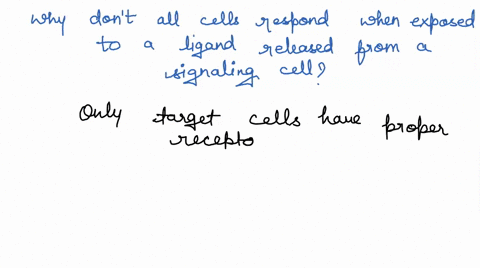 why don't all cells respond when exposed
to a ligand released from a
signaling cell?
Only target cells have proper
recepto